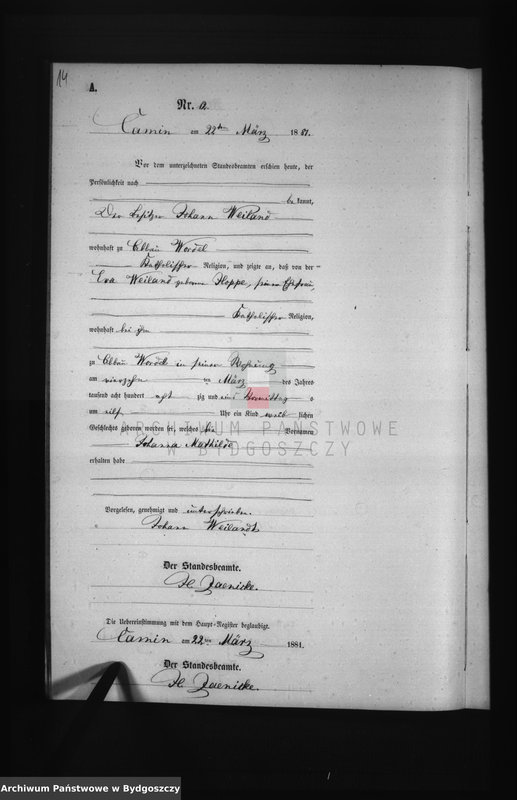 14
A.
Nr. a.
Camin am 22ten März 1881.
Vor dem unterzeichneten Standesbeamten erschien heute, der
Persönlichkeit nach
be kannt,
Der Besitzer Johann Weiland
wohnhaft zu Abbau Wordel
Katholischer Religion, und zeigte an, daß von der
Eva Weiland geborene Hoppe, seiner Ehefrau,
Katholischer Religion,
wohnhaft bei ihm
zu Abbau Wordel in seiner Wohnung
am vierzehn ten März des Jahres
tausend acht hundert acht zig und eins Vormittag s
um elf Uhr ein Kind weib lichen
Geschlechts geboren worden sei, welches die Vornamen
Johanna Mathilde
erhalten habe
Vorgelesen, genehmigt und unterschrieben.
Johann Weilandt
Der Standesbeamte.
Jaenicke.
Die Uebereinstimmung mit dem Haupt-Register beglaubigt.
Camin am 22ten März 1881.
Der Standesbeamte.
Jaenicke.
ARCHIWUM PAŃSTWOWE
W BYDGOSZCZY
Archiwum Państwowe w Bydgoszczy